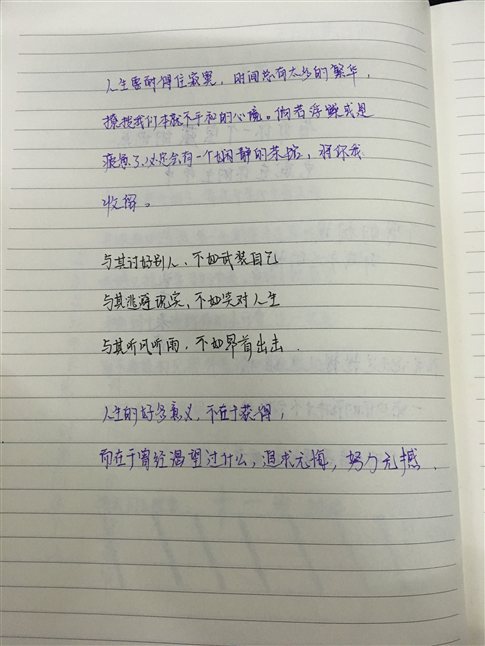 人生要耐得住寂寞，时间总有太多的繁华，
撩拨我们本就不平和的心境。倘若浮躁或是
疲惫了，必定会有一个娴静的茶馆，将你我
收容。
与其讨好别人，不如武装自己
与其逃避现实，不如笑对人生
与其听风听雨，不如昂首出击.
人生的好多意义，不在于获得，
而在于曾经渴望过什么，追求无悔，努力无憾.